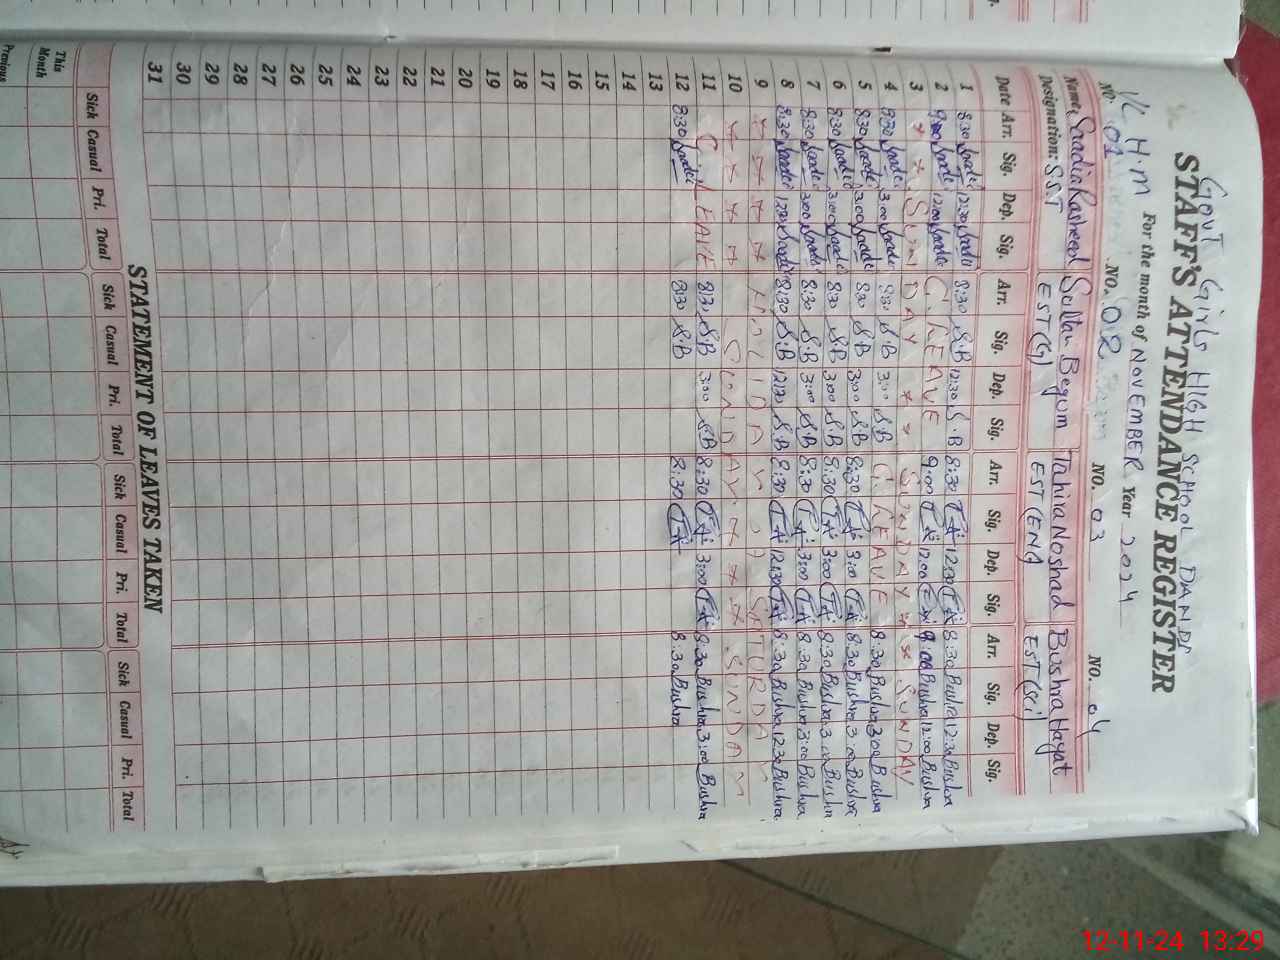 GOVT GIRLS HIGH SCHOOL DANDI
STAFF'S ATTENDANCE REGISTER
I/C H.M For the month of NOVEMBER Year 2024
NO. 01 NO. 02 NO. 03 NO. 04
Name: Saadia Rasheed Sultan Begum Tahira Noshad Bushra Hayat
Designation: SST EST(G) EST(ENG) EST(Sci)
Date Arr. Sig. Dep. Sig. Arr. Sig. Dep. Sig. Arr. Sig. Dep. Sig. Arr. Sig. Dep. Sig.
1 8:30 Saadi 12:30 Saadi 8:30 S.B 12:30 S.B 8:30 T.A 12:30 T.A 8:30 Bushra 12:30 Bushra
2 9:00 Saadi 12:00 Saadi C. LEAVE 9:00 T.A 12:00 9:00 Bushra 12:00 Bushra
3 SUNDAY SUNDAY SUNDAY
4 8:30 Saadi 3:00 Saadi 8:30 S.B 3:00 S.B C. LEAVE 8:30 Bushra 3:00 Bushra
5 8:30 Saadi 3:00 Saadi 8:30 S.B 3:00 S.B 8:30 T.A 3:00 T.A 8:30 Bushra 3:00 Bushra
6 8:30 Saadi 3:00 Saadi 8:30 S.B 3:00 S.B 8:30 T.A 3:00 T.A 8:30 Bushra 3:00 Bushra
7 8:30 Saadi 3:00 Saadi 8:30 S.B 3:00 S.B 8:30 T.A 3:00 T.A 8:30 Bushra 3:00 Bushra
8 8:30 Saadi 12:30 Saadi 8:30 S.B 12:30 S.B 8:30 T.A 12:30 T.A 8:30 Bushra 12:30 Bushra
9 SATURDAY
10 SUNDAY SUNDAY
11 C LEAVE 8:30 S.B 3:00 S.B 8:30 T.A 3:00 T.A 8:30 Bushra 3:00 Bushra
12 8:30 Saadi 8:30 S.B 8:30 T.A 8:30 Bushra
13
14
15
16
17
18
19
20
21
22
23
24
25
26
27
28
29
30
31
STATEMENT OF LEAVES TAKEN
Sick Casual Pri. Total Sick Casual Pri. Total Sick Casual Pri. Total Sick Casual Pri. Total
This Month
Previous
12-11-24 13:29